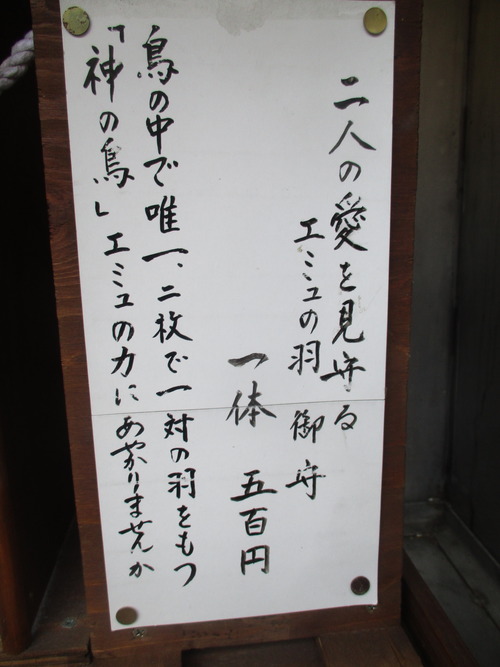 二人の愛を見守る
エミュの羽 御守
一体 五百円
鳥の中で唯一、二枚で一対の羽をもつ
「神の鳥」エミュの力にあやかりませんか